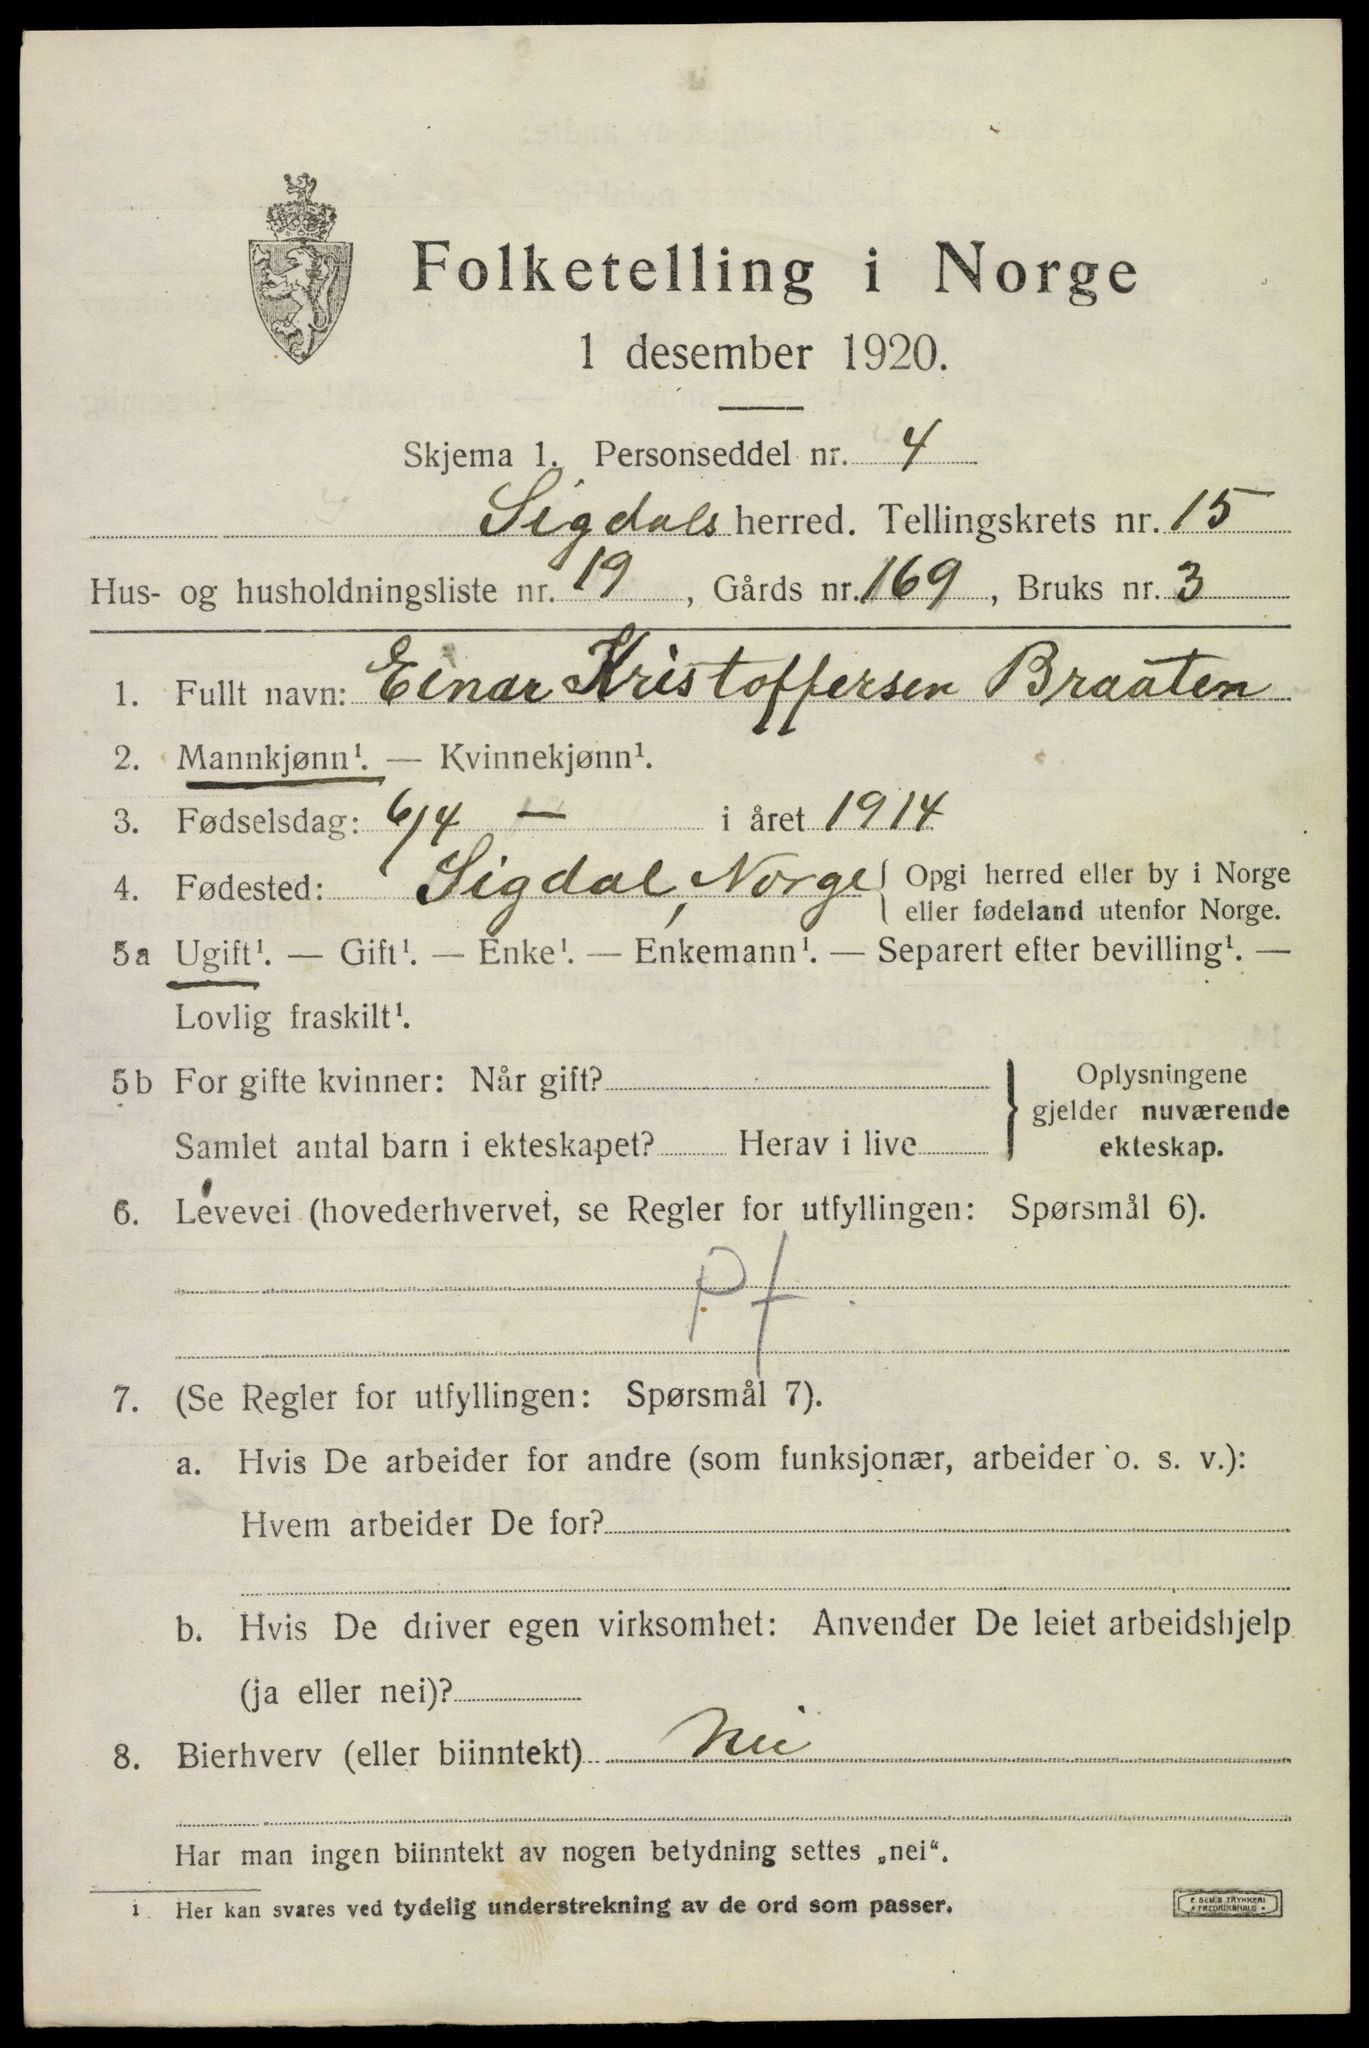 Folketelling i Norge
1 desember 1920.
Skjema 1. Personseddel nr. 4
Sigdals herred. Tellingskrets nr. 15
Hus- og husholdningsliste nr. 19, Gårds nr. 169, Bruks nr. 3
1. Fullt navn: Einar Kristoffersen Braaten
2. Mannkjønn¹. — Kvinnekjønn¹.
3. Fødselsdag: 6/4 — i året 1914
4. Fødested: Sigdal, Norge { Opgi herred eller by i Norge
eller fødeland utenfor Norge.
5a Ugift¹. — Gift¹. — Enke¹. — Enkemann¹. — Separert efter bevilling¹. —
Lovlig fraskilt¹.
5b For gifte kvinner: Når gift?
Samlet antal barn i ekteskapet? Herav i live
} Oplysningene
gjelder nuværende
ekteskap.
6. Levevei (hovederhvervet, se Regler for utfyllingen: Spørsmål 6).
pf
7. (Se Regler for utfyllingen: Spørsmål 7).
a. Hvis De arbeider for andre (som funksjonær, arbeider o. s. v.):
Hvem arbeider De for?
b. Hvis De driver egen virksomhet: Anvender De leiet arbeidshjelp
(ja eller nei)?
8. Bierhverv (eller biinntekt) Nei
Har man ingen biinntekt av nogen betydning settes „nei“.
1 Her kan svares ved tydelig understrekning av de ord som passer.
E. SEM'S TRYKKERI
FREDRIKSHALD